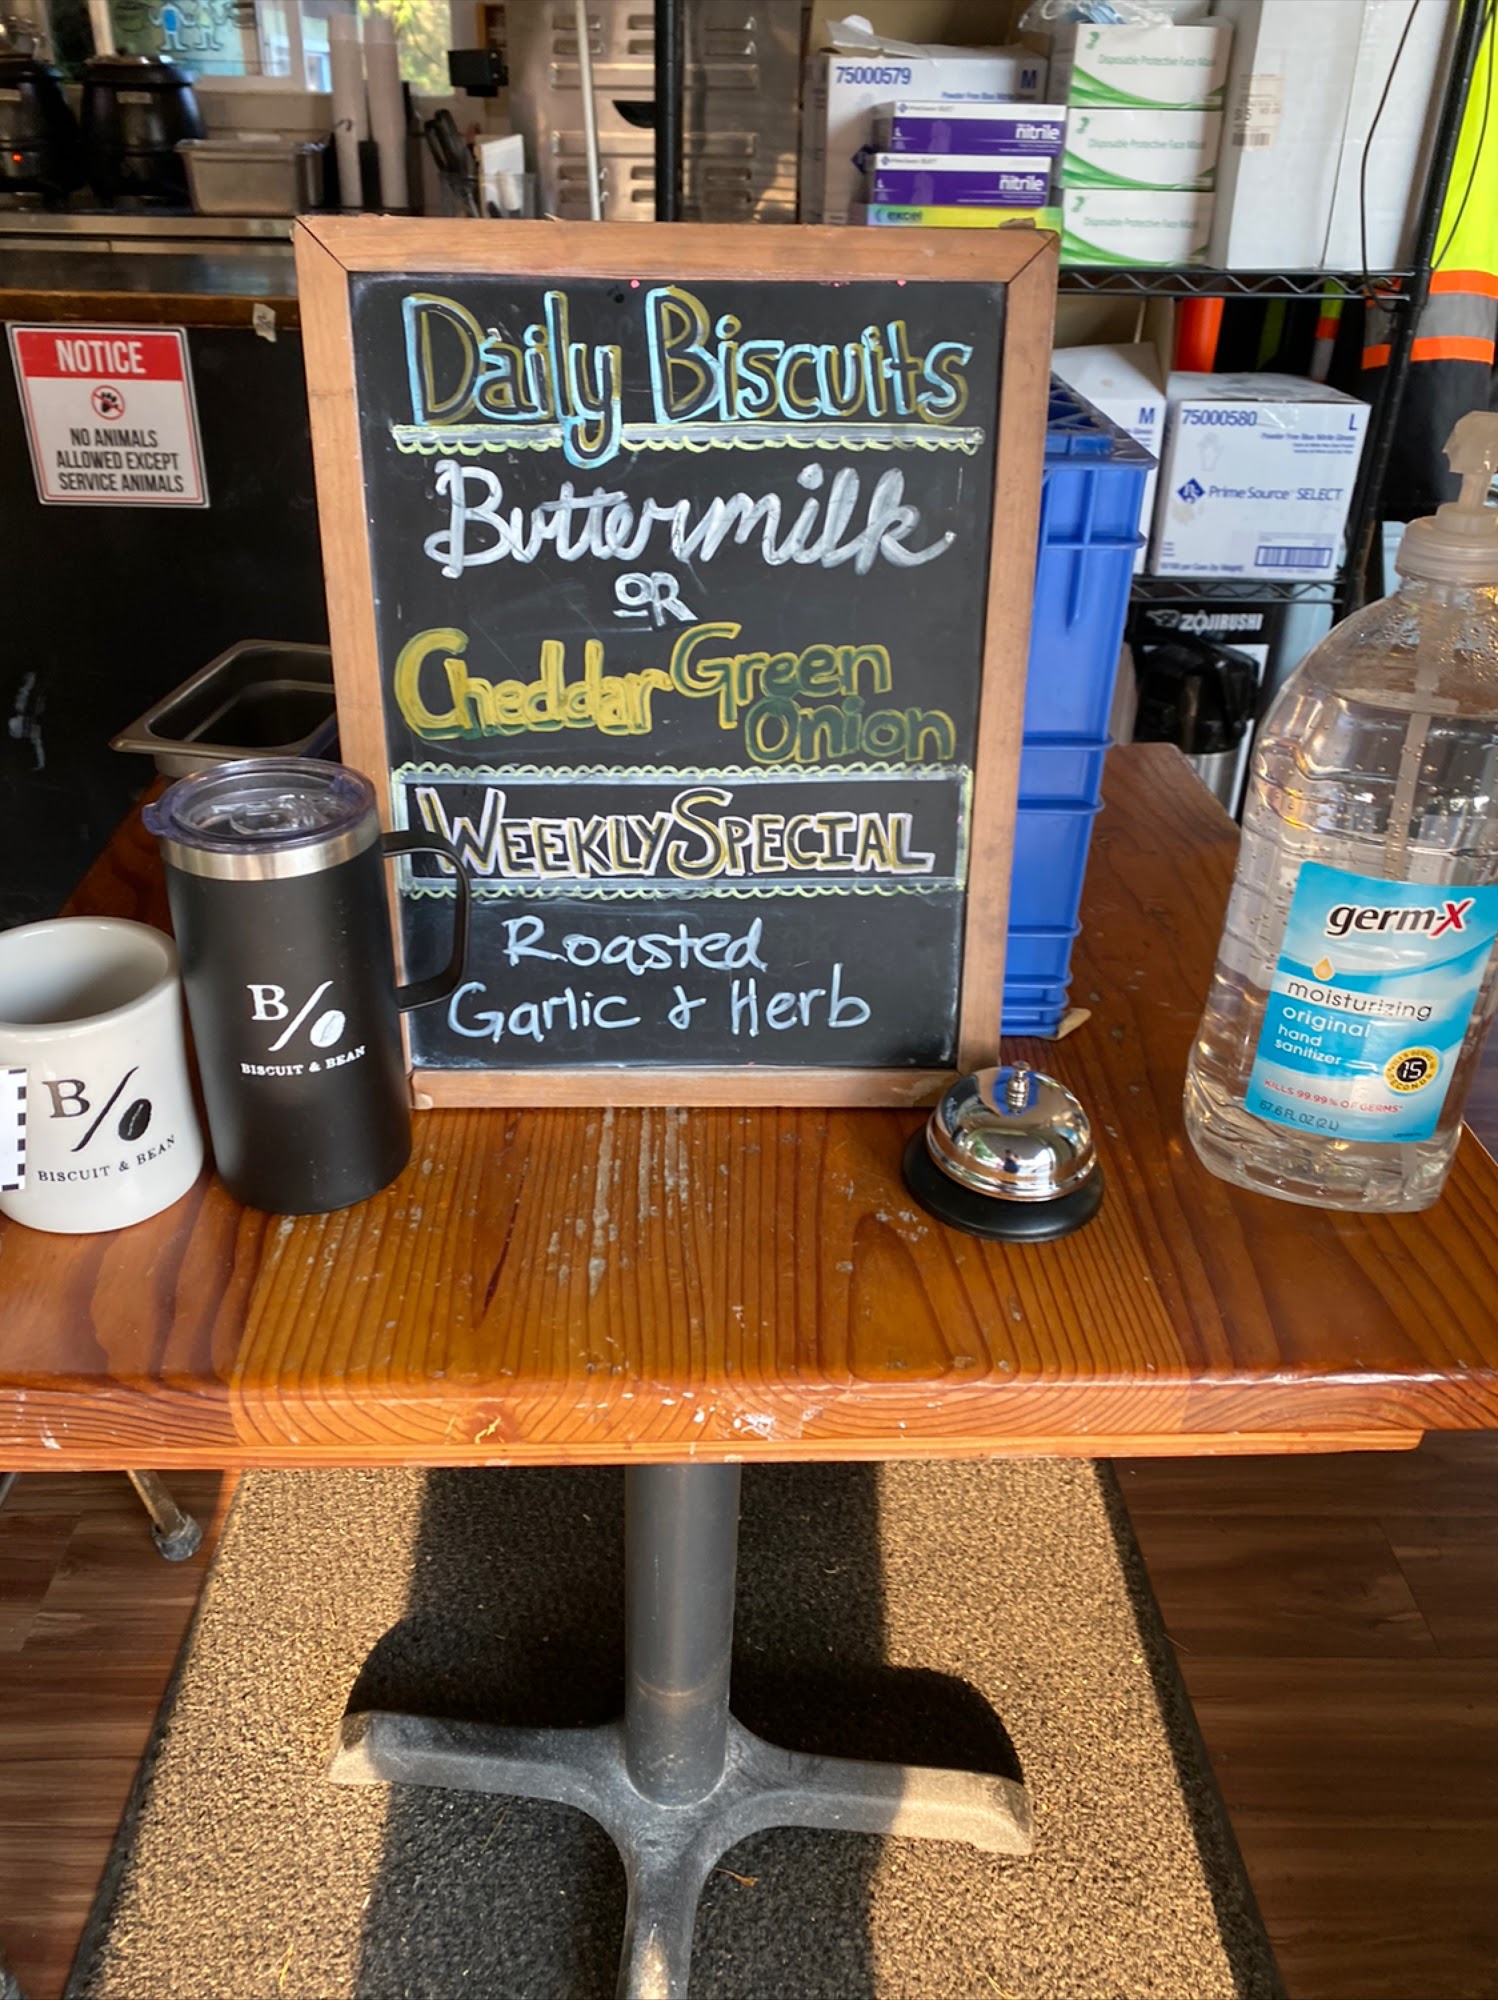 Daily Biscuits
Buttermilk
OR
Cheddar Green
Onion
WEEKLY SPECIAL
Roasted
Garlic & Herb
NOTICE
NO ANIMALS
ALLOWED EXCEPT
SERVICE ANIMALS
B/
BISCUIT & BEAN
B/
BISCUIT & BEAN
75000579 M
Powder Free Blue Nitrile Gloves
L nitrile
L nitrile
excel
Disposable Protective Face Mask
Disposable Protective Face Mask
Disposable Protective Face Mask
M
75000580 L
Powder Free Blue Nitrile Gloves
PrimeSource SELECT
ZOJIRUSHI
germ-X
moisturizing
original
hand
sanitizer
15
SECONDS
KILLS 99.99% OF GERMS*
67.6 FL OZ (2 L)